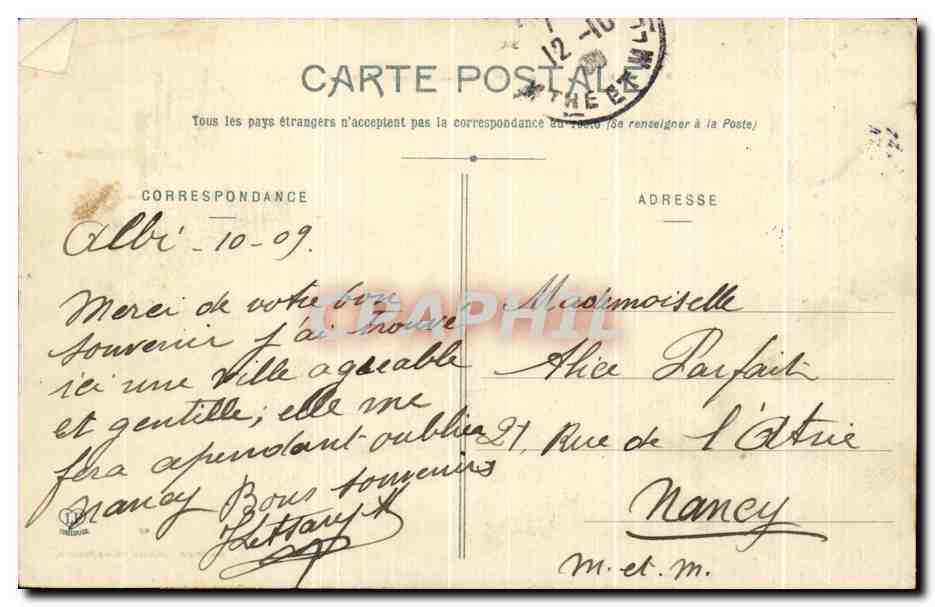 12 -10
MTHE ET M
CARTE POSTALE
Tous les pays étrangers n'acceptent pas la correspondance au recto (Se renseigner à la Poste)
CORRESPONDANCE
Albi - 10 - 09.
Merci de votre bon
souvenir j'ai trouvé
ici une ville agreable
et gentille; elle me
fera cependant oublier
nancy Bons souvenirs
TOULOUSE
ADRESSE
Mademoiselle
Alice Parfait
21, Rue de l'Atrie
Nancy
M. et. M.
CPAPHIL